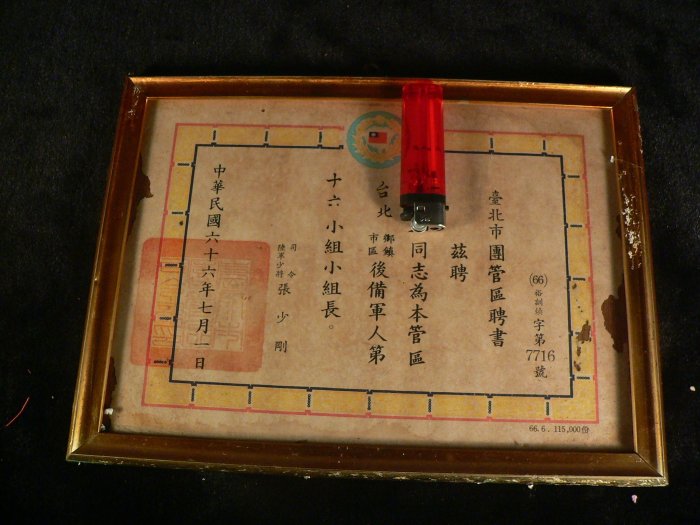 臺北市團管區聘書
(66)裕訓績字第7716號
茲聘
同志為本管區
台北鄉鎮市區後備軍人第
十六小組小組長。
司令
陸軍少將張少剛
中華民國六十六年七月一日
66.6.115,000份